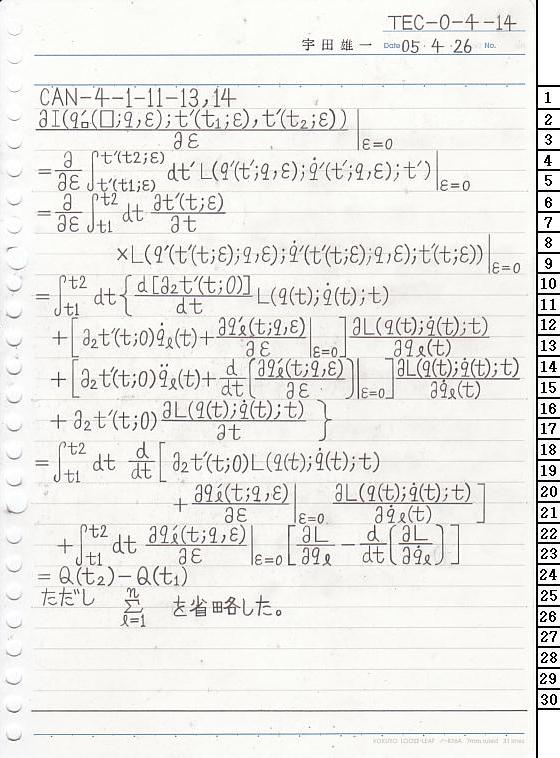 TEC-0-4-14
宇田雄一 Date 05・4・26 No.
CAN-4-1-11-13,14
∂I(q'□(□;q,ε);t'(t₁;ε),t'(t₂;ε))/∂ε |ε=0
=∂/∂ε ∫_{t'(t1;ε)}^{t'(t2;ε)} dt' L(q'(t';q,ε);q̇'(t';q,ε);t') |ε=0
=∂/∂ε ∫_{t1}^{t2} dt ∂t'(t;ε)/∂t
×L(q'(t'(t;ε);q,ε);q̇'(t'(t;ε);q,ε);t'(t;ε)) |ε=0
=∫_{t1}^{t2} dt { d[∂₂t'(t;0)]/dt L(q(t);q̇(t);t)
+[∂₂t'(t;0)q̇ℓ(t)+∂q'ℓ(t;q,ε)/∂ε |ε=0] ∂L(q(t);q̇(t);t)/∂qℓ(t)
+[∂₂t'(t;0)q̈ℓ(t)+d/dt(∂q'ℓ(t;q,ε)/∂ε)|ε=0] ∂L(q(t);q̇(t);t)/∂q̇ℓ(t)
+∂₂t'(t;0) ∂L(q(t);q̇(t);t)/∂t }
=∫_{t1}^{t2} dt d/dt [∂₂t'(t;0)L(q(t);q̇(t);t)
+∂q'ℓ(t;q,ε)/∂ε |ε=0 ∂L(q(t);q̇(t);t)/∂q̇ℓ(t)]
+∫_{t1}^{t2} dt ∂q'ℓ(t;q,ε)/∂ε |ε=0 [∂L/∂qℓ-d/dt(∂L/∂q̇ℓ)]
=Q(t₂)-Q(t₁)
ただし Σ_{ℓ=1}^{n} を省略した。
1
2
3
4
5
6
7
8
9
10
11
12
13
14
15
16
17
18
19
20
21
22
23
24
25
26
27
28
29
30
KOKUYO LOOSE-LEAF ノ-836A 7mm ruled 31 lines